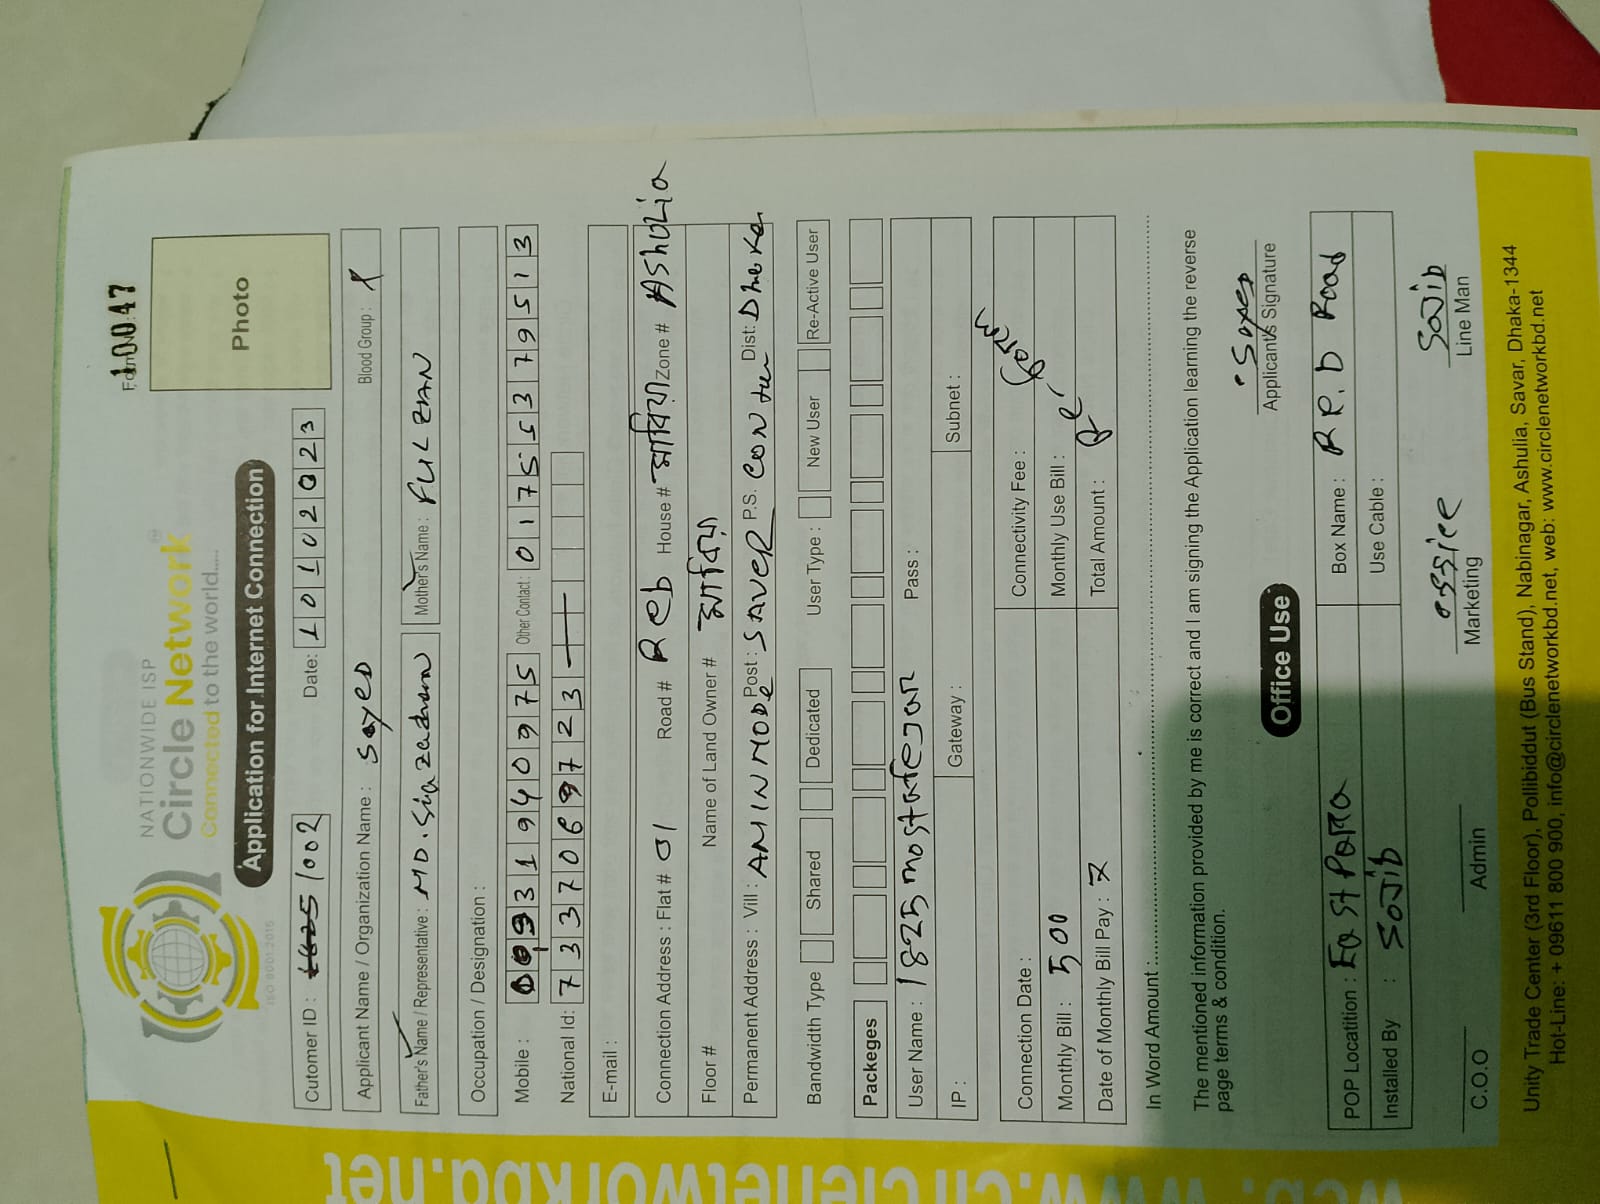 NATIONWIDE ISP
Circle Network
Connected to the world.....
ISO 9001:2015
100047
Photo
Application for Internet Connection
Cutomer ID : 1002 Date: 10102023
Applicant Name / Organization Name : Sayed Blood Group :
Father's Name / Representative : MD. Siazaddin Mother's Name : FULZAN
Occupation / Designation :
Mobile : 0131940975 Other Contact: 01755379513
National Id: 7337069723
E-mail :
Connection Address : Flat # 01 Road # Reb House # মাবিয়া Zone # Ashulia
Floor # Name of Land Owner # মাবিয়া
Permanent Address : Vill : AMINMODE Post : SAVER P.S. Dist: Dhaka
Bandwidth Type Shared Dedicated User Type : New User Re-Active User
Packeges
User Name : 1825mostafejar Pass :
IP : Gateway : Subnet :
Connection Date : Connectivity Fee :
Monthly Bill : 500 Monthly Use Bill :
Date of Monthly Bill Pay : 7 Total Amount :
In Word Amount :
The mentioned information provided by me is correct and I am signing the Application learning the reverse
page terms & condition.
Sayed
Applicant's Signature
Office Use
POP Locatition : East PaRa Box Name : R R. D Road
Installed By : Sojib Use Cable :
office Sojib
C.O.O Admin Marketing Line Man
Unity Trade Center (3rd Floor), Pollibiddut (Bus Stand), Nabinagar, Ashulia, Savar, Dhaka-1344
Hot-Line: + 09611 800 900, info@circlenetworkbd.net, web: www.circlenetworkbd.net